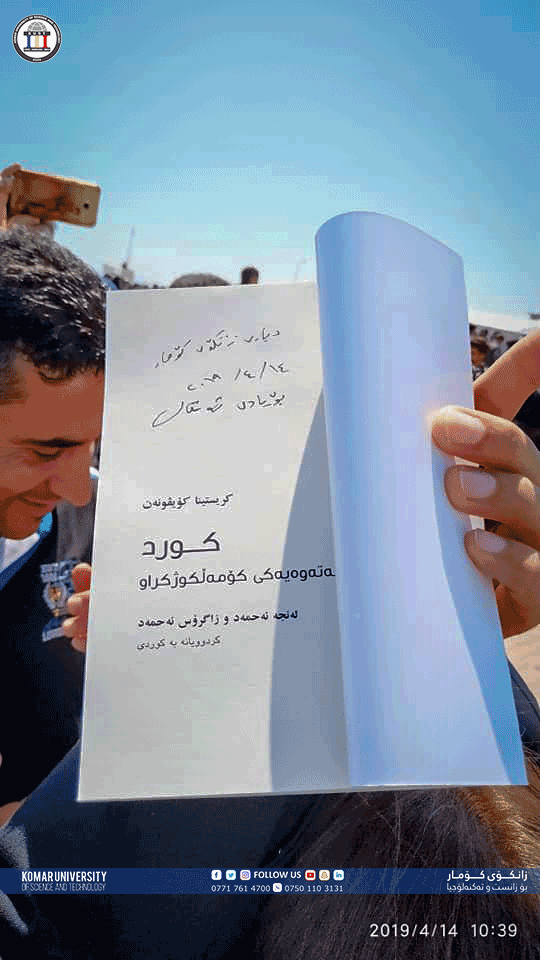 دیاری زانکۆی کۆمار
٢٠١٩/٤/١٤
بۆ یادی ئەنفال
کریستینا کۆیڤونەن
کورد
نەتەوەیەکی کۆمەڵکوژکراو
ئەنجە ئەحمەد و زاگرۆس ئەحمەد
کردوویانە بە کوردی
KOMAR UNIVERSITY
OF SCIENCE AND TECHNOLOGY
FOLLOW US
0771 761 4700 0750 110 3131
زانکۆی کۆمار
بۆ زانست و تەکنەلۆجیا
2019/4/14 10:39